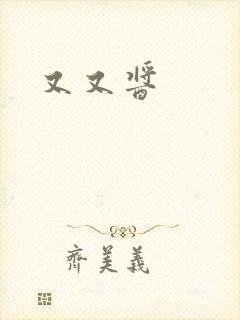 又又醬
齊美義